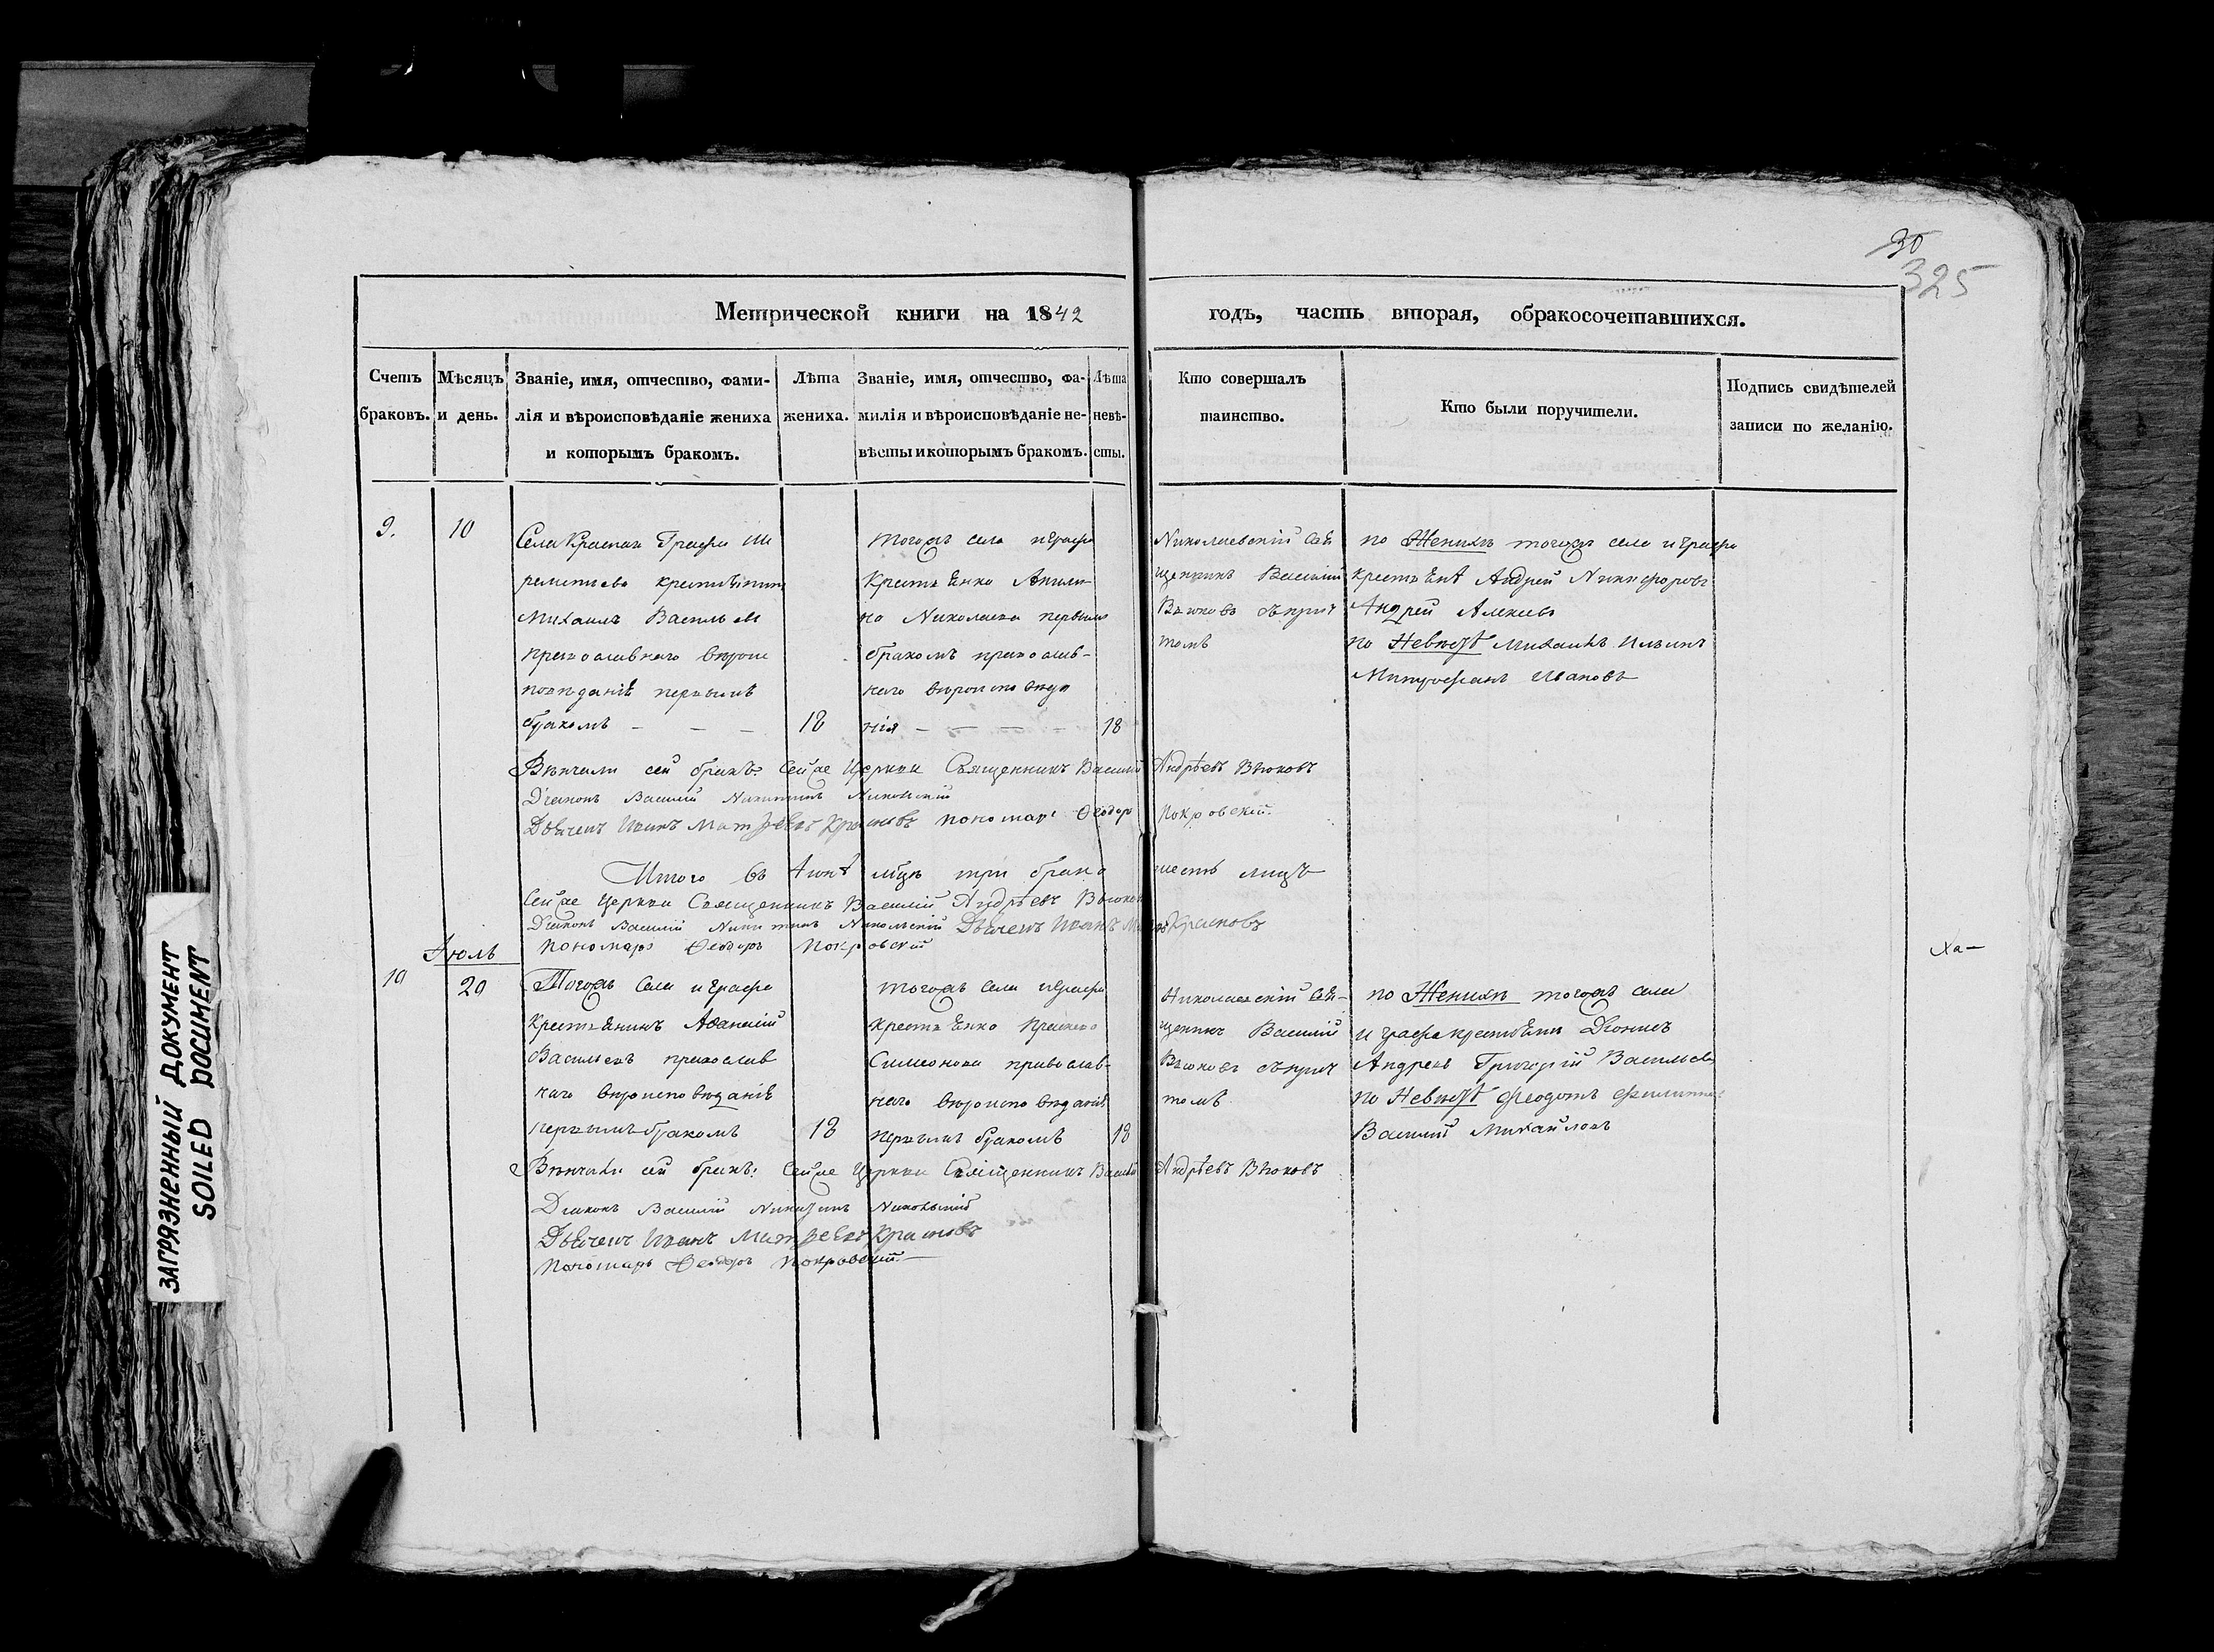 30
325
Метрической книги на 1842
годъ, часть вторая, обракосочетавшихся.
Счетъ браковъ.
Мѣсяцъ и день.
Званіе, имя, отчество, фами-
лія и вѣроисповѣданіе жениха
и которымъ бракомъ.
Лѣта
жениха.
Званіе, имя, отчество, фа-
милія и вѣроисповѣданіе не-
вѣсты и которымъ бракомъ.
Лѣта
невѣ-
сты.
Кто совершалъ
таинство.
Кто были поручители.
Подпись свидѣтелей
записи по желанію.
9.
10
Села Графа Ше
реметьева
Михаилъ Васильевъ
православнаго вѣрои
первымъ
бракомъ
18
тогожъ села играфа
крестьѣнка
на Николаева первымъ
бракомъ православ-
наго вѣроисповѣда
нія
18
Николаевскій Свя
щенникъ Василій
Вьюковъ съприч
томъ
по Женихѣ тогожъ села играфа
Андрей Никифоровъ
Андрей Алексѣевъ
по Невѣстѣ Михаилъ Ильинъ
Митрофанъ Ивановъ
Вѣнчали сей бракъ: Сейже Церкви Священникъ Василій Андрѣевъ Вьюковъ
Діаконъ Василій Никитинъ Никольскій
Дьячекъ Иванъ Матвѣевъ Красновъ пономарь Ѳеодоръ Покровскій
Итого въ мцѣ три брака шесть лицъ
Сейже Церкви Священникъ Василій Андрѣевъ Вьюковъ
Діаконъ Василій Никитинъ Никольскій Дьячекъ Иванъ Красновъ
пономарь Ѳеодоръ Покровскій
Іюль
Ха-
10
20
Тогожъ Села играфа
Крестьянинъ Аѳанасій
Васильевъ православ
наго вѣроисповѣданіѣ
первымъ бракомъ
18
тогожъ села играфа
крестьѣнка
Симеонова православ-
наго вѣроисповѣданіѣ
первымъ бракомъ
18
Николаевскій Свя-
щеникъ Василій
Вьюковъ съприч
томъ
по Женихѣ тогожъ села
и графа
Андреевъ Григорій Васильевъ
по Невѣстѣ Феодотъ Филиппов
Василій Михайловъ
Вѣнчали сей бракъ: Сейже Церкви Священникъ Василій Андрѣевъ Вьюковъ
Діаконъ Василій Никитинъ Никольскій
Дьячекъ Иванъ Матвѣевъ Красновъ
Пономарь Ѳеодоръ Покровскій
ЗАГРЯЗНЕННЫЙ ДОКУМЕНТ
SOILED DOCUMENT